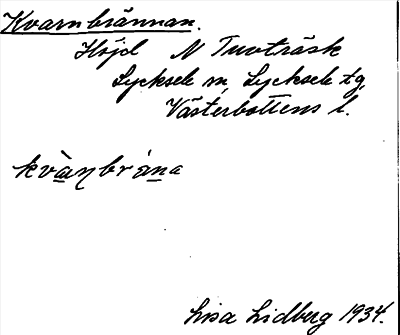 Kvarnbrännan.
Höjd N Tuvträsk
Lycksele sn, Lycksele tg,
Västerbottens l.
kvàɳbrána
Lisa Lidberg 1934.